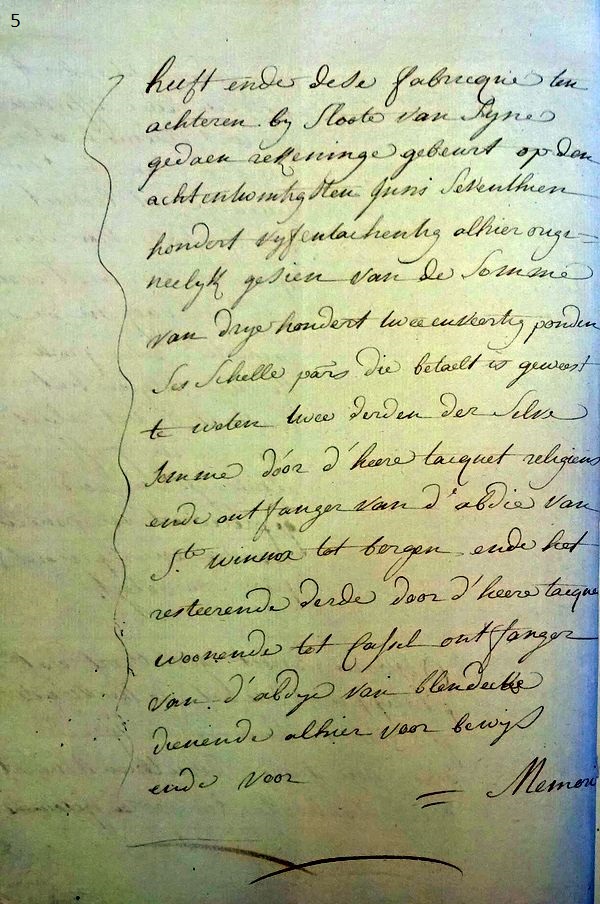 5
heeft ende dese fabricque ten
achteren by Sloote van Syne
gedaen rekeninge gebeurt op den
achtentwintigsten Juni Seventhien
hondert vyfentachentig alhier orig=
neelyk gesien van de Somme
van drye hondert tweeenveertig ponden
Ses Schelle pars die betaelt is geweest
te weten twee derden der Selve
Somme door d'heere tacquet religieus
ende ontfanger van d'abdie van
Ste winnox tot bergen ende het
resteerende derde door d'heere tacque
woonende tot Cassel ontfanger
van d'abdye van blendecke
dienende alhier voor bewys
ende voor = Memori